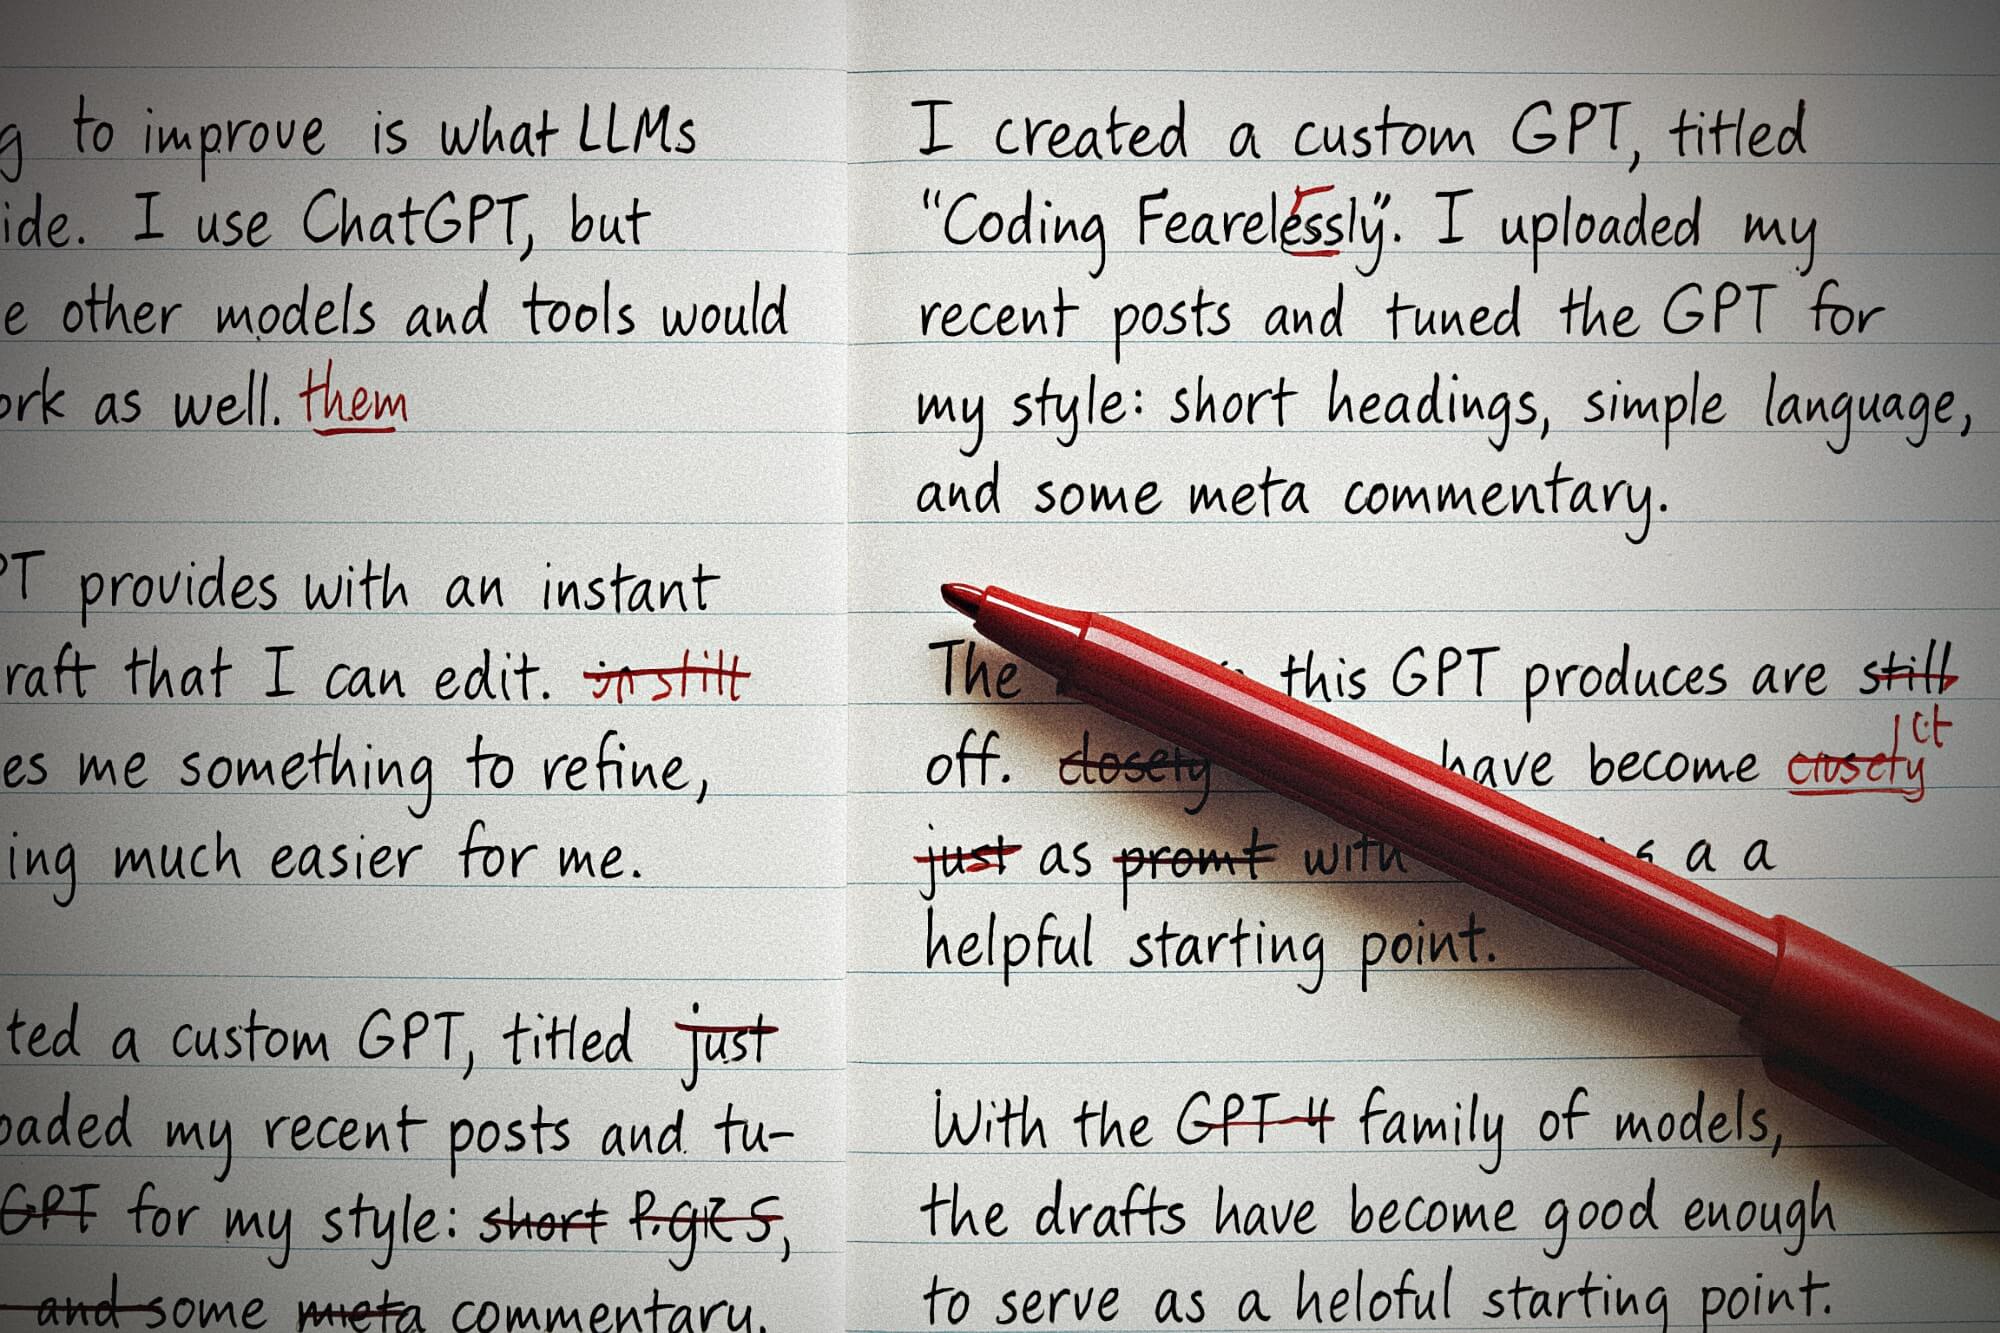 g to improve is what LLMs
ide. I use ChatGPT, but
e other models and tools would
ork as well. them
PT provides with an instant
raft that I can edit. in still
es me something to refine,
ing much easier for me.
ted a custom GPT, titled just
oaded my recent posts and tu-
GPT for my style: short
and some meta commentary.
I created a custom GPT, titled
“Coding Fearelessly”. I uploaded my
recent posts and tuned the GPT for
my style: short headings, simple language,
and some meta commentary.
The this GPT produces are still
off. closely have become
just as promt with a a
helpful starting point.
With the GPT-4 family of models,
the drafts have become good enough
to serve as a heloful starting point.